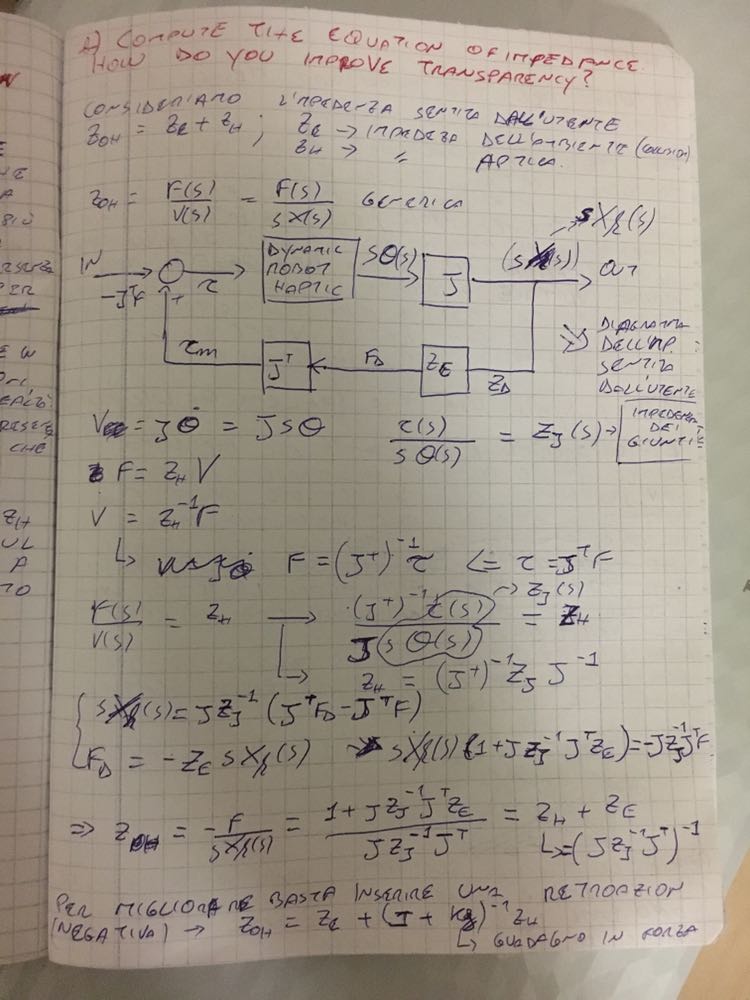 A) COMPUTE THE EQUATION OF IMPEDANCE.
HOW DO YOU IMPROVE TRANSPARENCY?
CONSIDERIAMO L'IMPEDENZA SENTITA DALL'UTENTE
Z_OH = Z_E + Z_H ; Z_E → IMPEDEZA DELL'AMBIENTE (COLLISION)
Z_H → " APTICA.
Z_OH = F(S)/V(S) = F(S)/SX(S) GENERICA
→ SX_R(S)
IN → DYNAMIC ROBOT HAPTIC SΘ(S) J (SX(S)) OUT
-J^T F + τ
τ_m J^T F_D Z_E Z_D
DIAGRAMMA
DELL'IMP.
SENTITA
DALL'UTENTE
V = J Θ̇ = J S Θ τ(S)/SΘ(S) = Z_J(S) → IMPEDENZA DEI GIUNTI
F = Z_H V
V = Z_H^-1 F
↳ F = (J^T)^-1 τ <= τ = J^T F
F(S)/V(S) = Z_H → (J^T)^-1 τ(S) / J SΘ(S) = Z_H → Z_J(S)
↳ Z_H = (J^T)^-1 Z_J J^-1
{ SX_R(S) = J Z_J^-1 (J^T F_D - J^T F)
F_D = - Z_E SX_R(S) → SX_R(S) (1 + J Z_J^-1 J^T Z_E) = -J Z_J^-1 J^T F
=> Z_OH = -F/SX_R(S) = (1 + J Z_J^-1 J^T Z_E) / (J Z_J^-1 J^T) = Z_H + Z_E
↳ = (J Z_J^-1 J^T)^-1
PER MIGLIORARE BASTA INSERIRE UNA RETROAZION
(NEGATIVA) → Z_OH = Z_E + (I + K_F)^-1 Z_H
↳ GUADAGNO IN FORZA